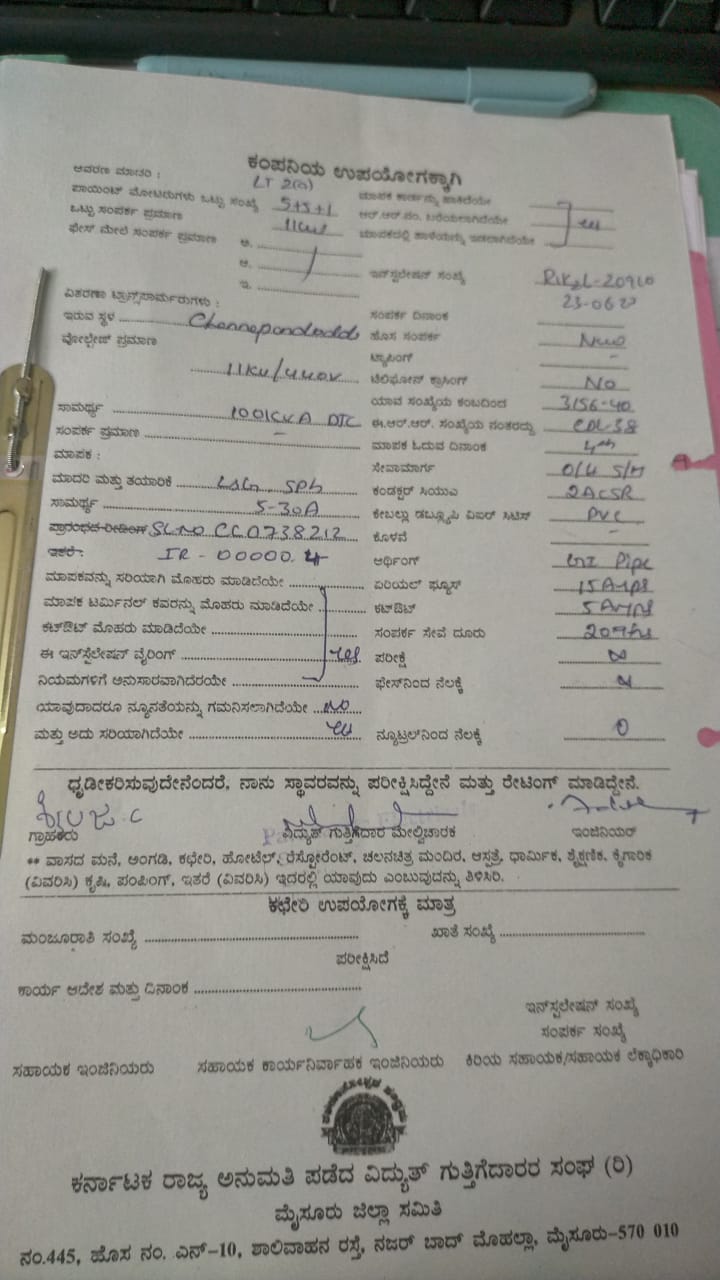 ಕಂಪನಿಯ ಉಪಯೋಗಕ್ಕಾಗಿ
ಆವರಣ ಮಾತರಿ : LT 2(a) ಮಾಪಕ ಕಾರ್ಡನ್ನು ಹಾಕಿದೆಯೇ
ಪಾಯಿಂಟ್ ಮೋಟರುಗಳು ಒಟ್ಟು ಸಂಖ್ಯೆ 5+5+1 ಆರ್.ಆರ್.ನಂ. ಬರೆಯಲಾಗಿದೆಯೇ
ಒಟ್ಟು ಸಂಪರ್ಕ ಪ್ರಮಾಣ 11KW ಮಾಪಕದಲ್ಲಿ ಹಾಳೆಯನ್ನು ಇಡಲಾಗಿದೆಯೇ
ಫೇಸ್ ಮೇಲೆ ಸಂಪರ್ಕ ಪ್ರಮಾಣ ಅ.
ಆ.
ಇ. ಇನ್‌ಸ್ಟಲೇಷನ್ ಸಂಖ್ಯೆ
ವಿತರಣಾ ಟ್ರಾನ್ಸ್‌ಫಾರ್ಮರುಗಳು :
ಇರುವ ಸ್ಥಳ ಸಂಪರ್ಕ ದಿನಾಂಕ
ವೋಲ್ಟೇಜ್ ಪ್ರಮಾಣ ಹೊಸ ಸಂಪರ್ಕ New
ಟ್ಯಾಪಿಂಗ್ -
11KV/440V ಟೆಲಿಫೋನ್ ಕ್ರಾಸಿಂಗ್ NO
ಯಾವ ಸಂಖ್ಯೆಯ ಕಂಬದಿಂದ 3156-40
ಸಾಮರ್ಥ್ಯ 100KVA DTC ಈ.ಆರ್.ಆರ್. ಸಂಖ್ಯೆಯ ನಂತರದ್ದು
ಸಂಪರ್ಕ ಪ್ರಮಾಣ - ಮಾಪಕ ಓದುವ ದಿನಾಂಕ 4th
ಮಾಪಕ : ಸೇವಾಮಾರ್ಗ O/H S/M
ಮಾದರಿ ಮತ್ತು ತಯಾರಿಕೆ ಕಂಡಕ್ಟರ್ ಸಿಯುಎ 2ACSR
ಸಾಮರ್ಥ್ಯ 5-30A ಕೇಬಲ್ಲು ಡಬ್ಲ್ಯೂಪಿ ವಿಐರ್ ಸಿಟಿಸ್ PVC
ಪ್ರಾರಂಭದ ರೀಡಿಂಗ್ SL.NO CC0738212 ಕೊಳವೆ -
ಇತರೆ : IR - 00000. ಅರ್ಥಿಂಗ್ GI Pipe
ಮಾಪಕವನ್ನು ಸರಿಯಾಗಿ ಮೊಹರು ಮಾಡಿದೆಯೇ ಏರಿಯಲ್ ಫ್ಯೂಸ್ 15Amps
ಮಾಪಕ ಟರ್ಮಿನಲ್ ಕವರನ್ನು ಮೊಹರು ಮಾಡಿದೆಯೇ ಕಟ್‌ಔಟ್ 5Amps
ಕಟ್‌ಔಟ್ ಮೊಹರು ಮಾಡಿದೆಯೇ ಸಂಪರ್ಕ ಸೇವೆ ದೂರು
ಈ ಇನ್‌ಸ್ಟೆಲೇಷನ್ ವೈರಿಂಗ್ yes ಪರೀಕ್ಷೆ
ನಿಯಮಗಳಿಗೆ ಅನುಸಾರವಾಗಿದೆರಯೇ ಫೇಸ್‌ನಿಂದ ನೆಲಕ್ಕೆ
ಯಾವುದಾದರೂ ನ್ಯೂನತೆಯನ್ನು ಗಮನಿಸಲಾಗಿದೆಯೇ NO
ಮತ್ತು ಅದು ಸರಿಯಾಗಿದೆಯೇ yes ನ್ಯೂಟ್ರಲ್‌ನಿಂದ ನೆಲಕ್ಕೆ 0
ಧೃಡೀಕರಿಸುವುದೇನೆಂದರೆ, ನಾನು ಸ್ಥಾವರವನ್ನು ಪರೀಕ್ಷಿಸಿದ್ದೇನೆ ಮತ್ತು ರೇಟಿಂಗ್ ಮಾಡಿದ್ದೇನೆ.
ಗ್ರಾಹಕರು ವಿದ್ಯುತ್ ಗುತ್ತಿಗೆದಾರ ಮೇಲ್ವಿಚಾರಕ ಇಂಜಿನಿಯರ್
** ವಾಸದ ಮನೆ, ಅಂಗಡಿ, ಕಛೇರಿ, ಹೋಟೆಲ್, ರೆಸ್ಟೋರೆಂಟ್, ಚಲನಚಿತ್ರ ಮಂದಿರ, ಆಸ್ಪತ್ರೆ, ಧಾರ್ಮಿಕ, ಶೈಕ್ಷಣಿಕ, ಕೈಗಾರಿಕ
(ವಿವರಿಸಿ) ಕೃಷಿ, ಪಂಪಿಂಗ್, ಇತರೆ (ವಿವರಿಸಿ) ಇದರಲ್ಲಿ ಯಾವುದು ಎಂಬುವುದನ್ನು ತಿಳಿಸಿರಿ.
ಕಛೇರಿ ಉಪಯೋಗಕ್ಕೆ ಮಾತ್ರ
ಮಂಜೂರಾತಿ ಸಂಖ್ಯೆ ಖಾತೆ ಸಂಖ್ಯೆ
ಪರೀಕ್ಷಿಸಿದೆ
ಕಾರ್ಯ ಆದೇಶ ಮತ್ತು ದಿನಾಂಕ
ಇನ್‌ಸ್ಟಲೇಷನ್ ಸಂಖ್ಯೆ
ಸಂಪರ್ಕ ಸಂಖ್ಯೆ
ಸಹಾಯಕ ಇಂಜಿನಿಯರು ಸಹಾಯಕ ಕಾರ್ಯನಿರ್ವಾಹಕ ಇಂಜಿನಿಯರು ಕಿರಿಯ ಸಹಾಯಕ/ಸಹಾಯಕ ಲೆಕ್ಕಾಧಿಕಾರಿ
ಕರ್ನಾಟಕ ರಾಜ್ಯ ಅನುಮತಿ ಪಡೆದ ವಿದ್ಯುತ್ ಗುತ್ತಿಗೆದಾರರ ಸಂಘ (ರಿ)
ಮೈಸೂರು ಜಿಲ್ಲಾ ಸಮಿತಿ
ನಂ.445, ಹೊಸ ನಂ. ಎನ್-10, ಶಾಲಿವಾಹನ ರಸ್ತೆ, ನಜರ್ ಬಾದ್ ಮೊಹಲ್ಲಾ, ಮೈಸೂರು-570 010